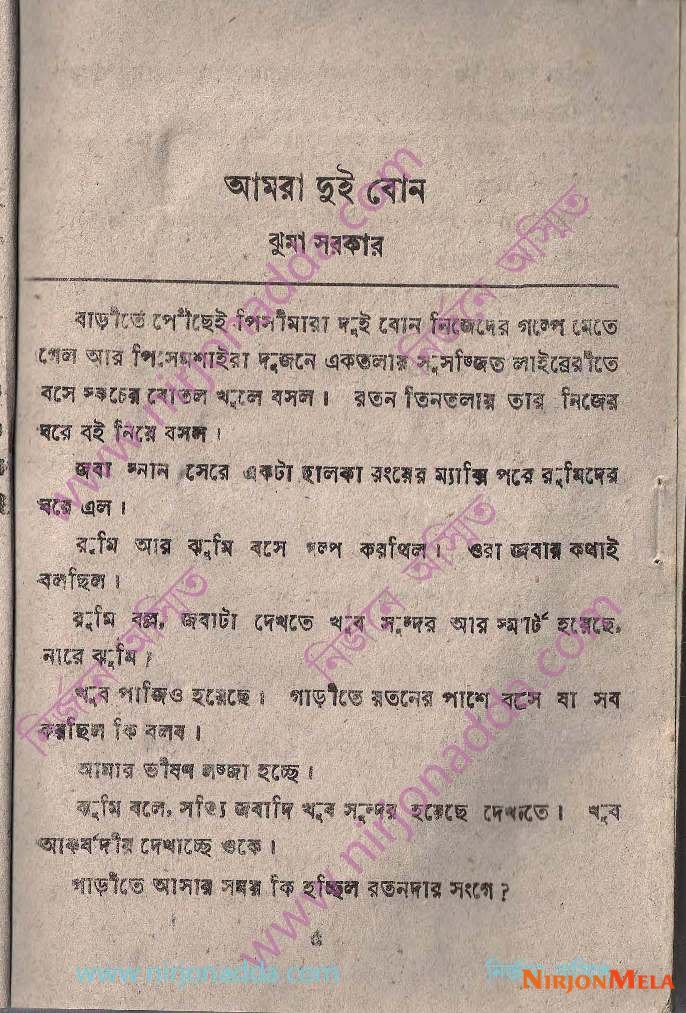 আমরা দুই বোন
ঝুমা সরকার
বাড়ীতে পৌঁছেই পিসীমারা দুই বোন নিজেদের গল্পে মেতে
গেল আর পিসেমশাইরা দুজনে একতলায় সুসজ্জিত লাইব্রেরীতে
বসে স্কচের বোতল খুলে বসল। রতন তিনতলায় তার নিজের
ঘরে বই নিয়ে বসল।
জবা স্নান সেরে একটা হালকা রংয়ের ম্যাক্সি পরে রুমিদের
ঘরে এল।
রুমি আর ঝুমি বসে গল্প করছিল। ওরা জবার কথাই
বলছিল।
রুমি বল্ল, জবাটা দেখতে খুব সুন্দর আর স্মার্ট হয়েছে,
নারে ঝুমি?
খুব পাজিও হয়েছে। গাড়ীতে রতনের পাশে বসে যা সব
করছিল কি বলব।
আমার ভীষণ লজ্জা হচ্ছে।
ঝুমি বলে, সত্যি জবাদি খুব সুন্দর হয়েছে দেখতে। খুব
আকর্ষণীয় দেখাচ্ছে ওকে।
গাড়ীতে আসার সময় কি হচ্ছিল রতনদার সংগে?
৫
www.nirjonadda.com
নির্জনে অস্মিত
www.nirjonadda.com
নির্জনে অস্মিত
নির্জনে অস্মিত
www.nirjonadda.com
NIRJONMELA